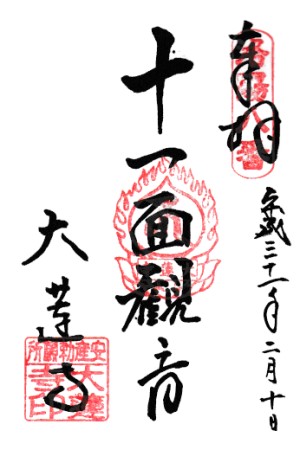 奉拝
洛陽八番
平成三十一年二月十日
十一面観音
大蓮寺
安産勅願所
大蓮寺印